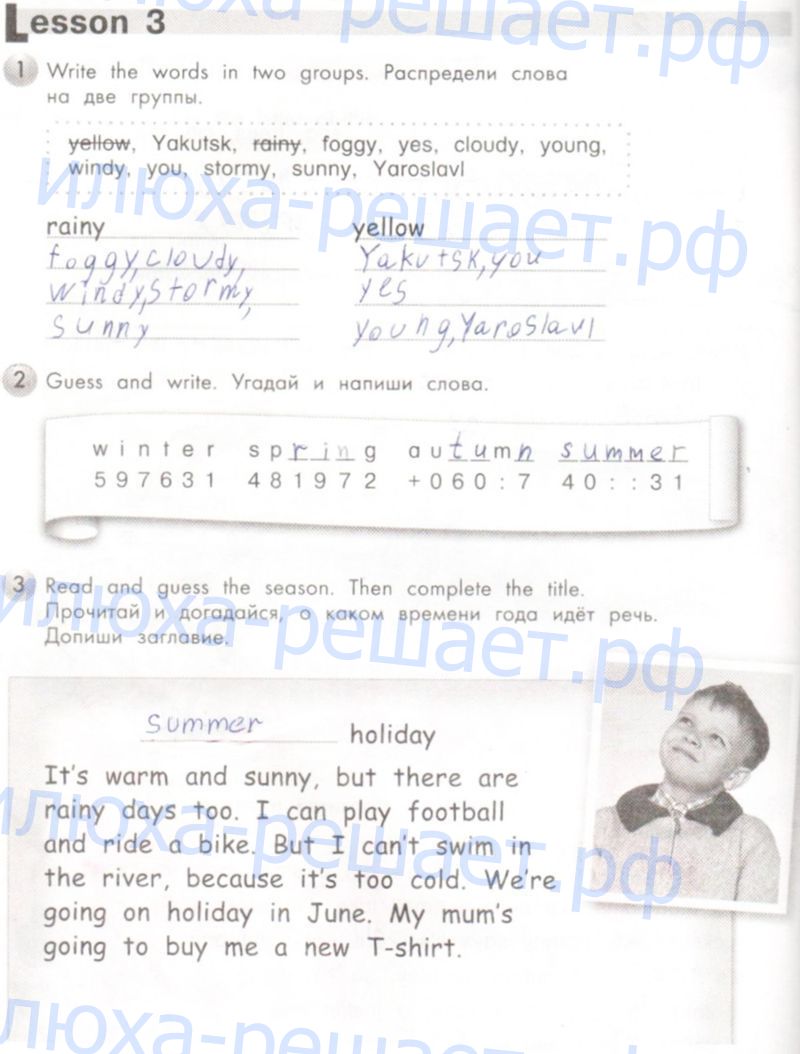 Lesson 3
1 Write the words in two groups. Распредели слова
на две группы.
yellow, Yakutsk, rainy, foggy, yes, cloudy, young,
windy, you, stormy, sunny, Yaroslavl
rainy yellow
foggy, cloudy, Yakutsk, you
windy, stormy, yes
sunny young, Yaroslavl
2 Guess and write. Угадай и напиши слова.
winter spring autumn summer
597631 481972 +060:7 40::31
3 Read and guess the season. Then complete the title.
Прочитай и догадайся, о каком времени года идёт речь.
Допиши заглавие.
Summer holiday
It's warm and sunny, but there are
rainy days too. I can play football
and ride a bike. But I can't swim in
the river, because it's too cold. We're
going on holiday in June. My mum's
going to buy me a new T-shirt.
илюха-решает.рф
илюха-решает.рф
илюха-решает.рф
илюха-решает.рф
илюха-решает.рф